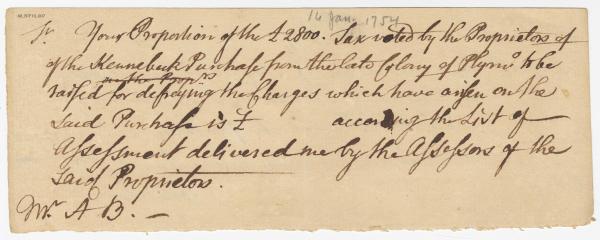 14 Jan. 1754
Sr. Your Proportion of the £2800. Tax voted by the Proprietors of
of the Kennebeck Purchase from the late Colony of Plymo. to be
raised for defraying the Charges which have arisen on the
said Purchase is £ according the List of
Assessment delivered me by the Assessors of the
said Proprietors.
Mr. A B. —